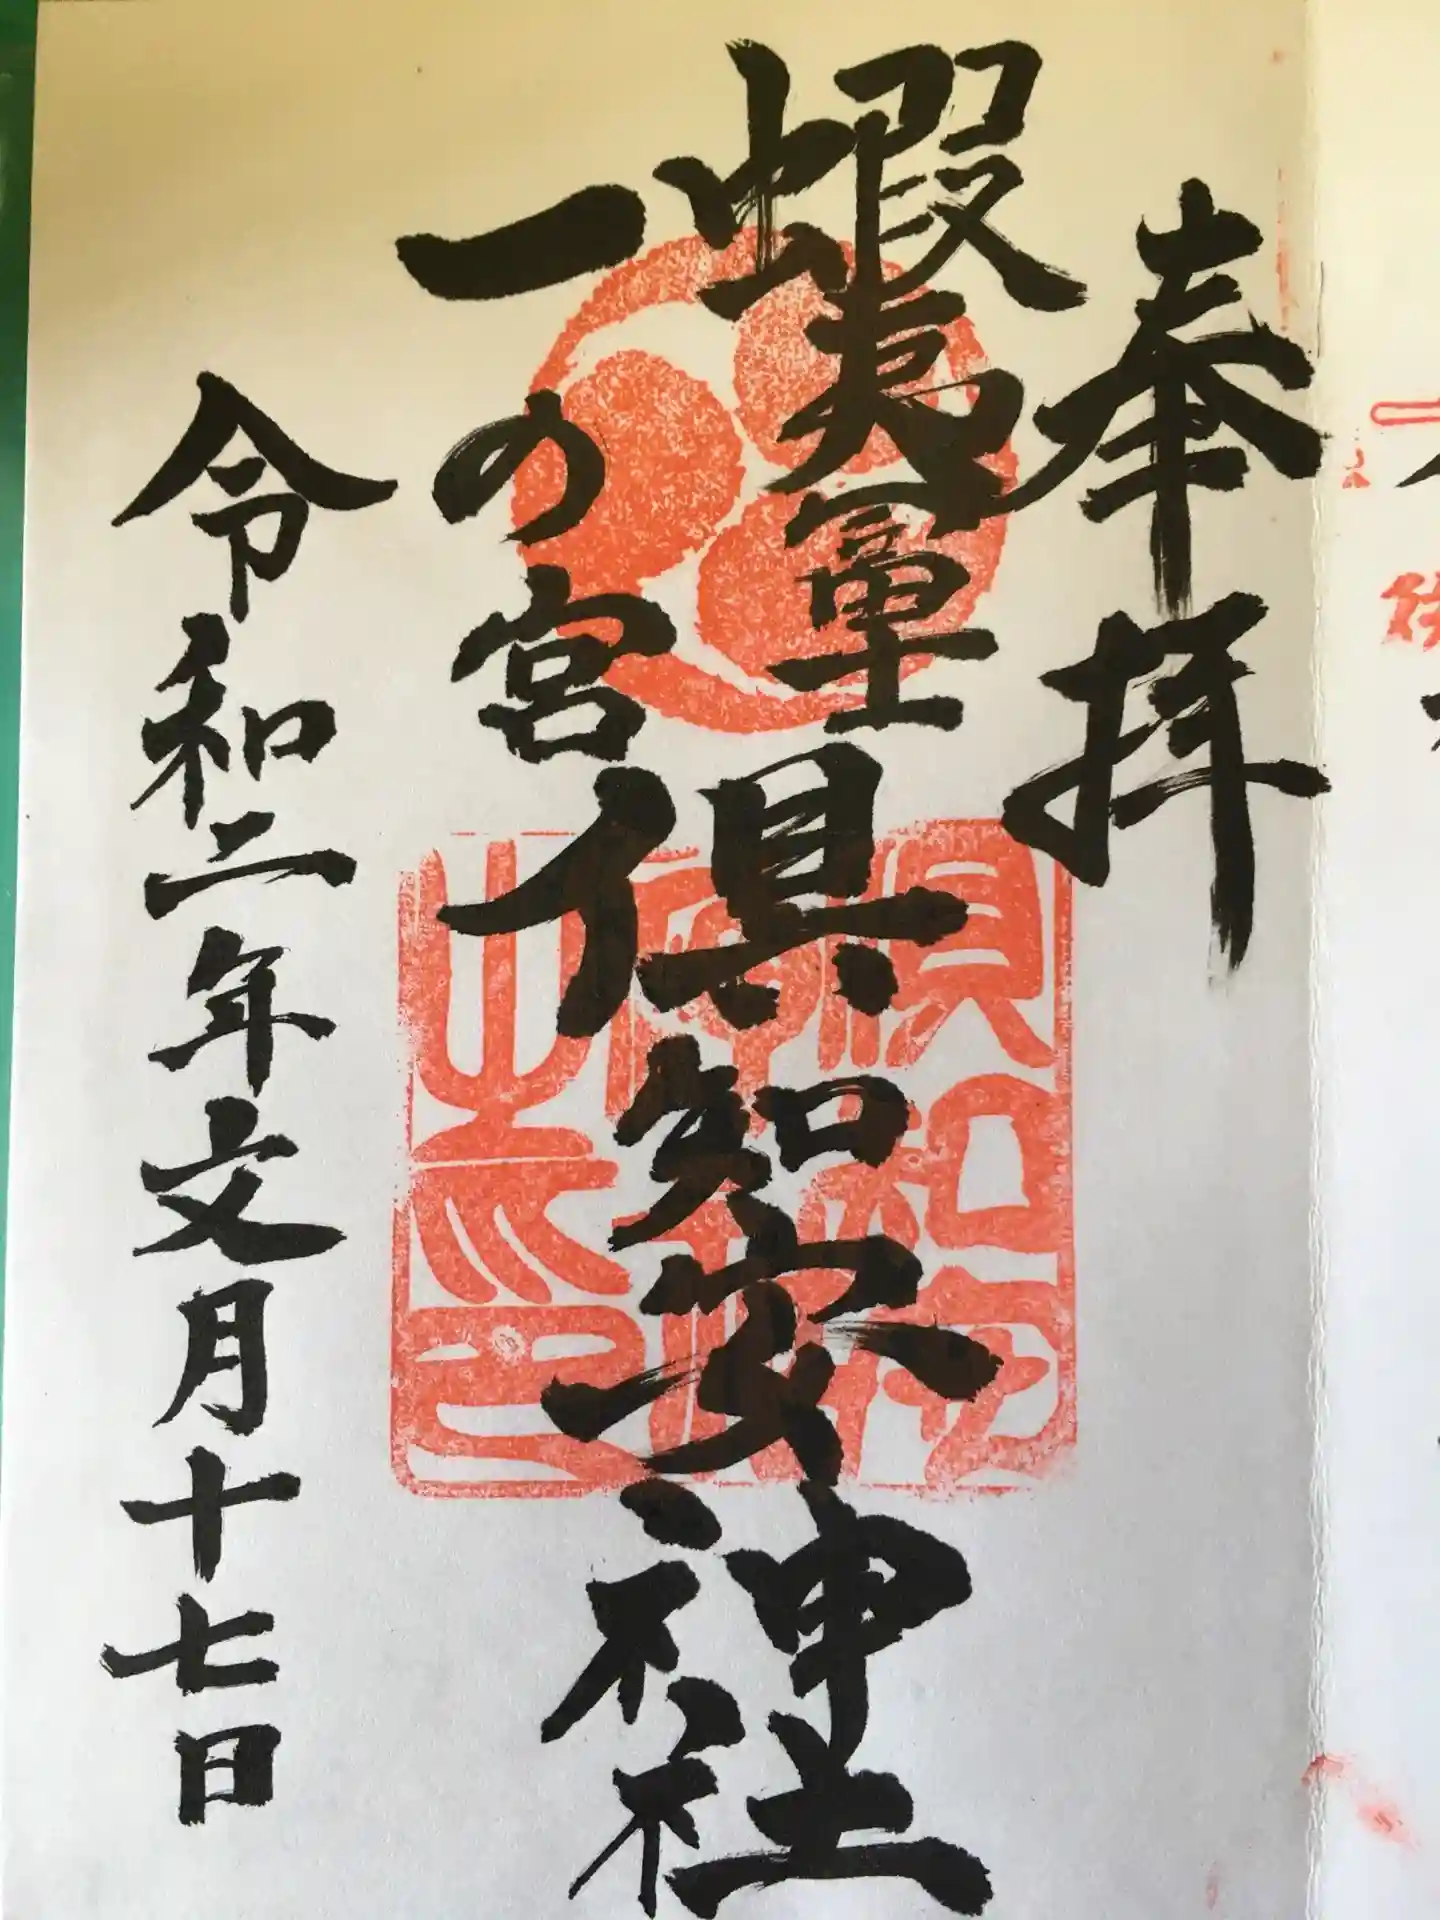 奉拝
蝦夷冨士
一の宮
倶知安神社
令和二年文月十七日
倶知安
神社
之印